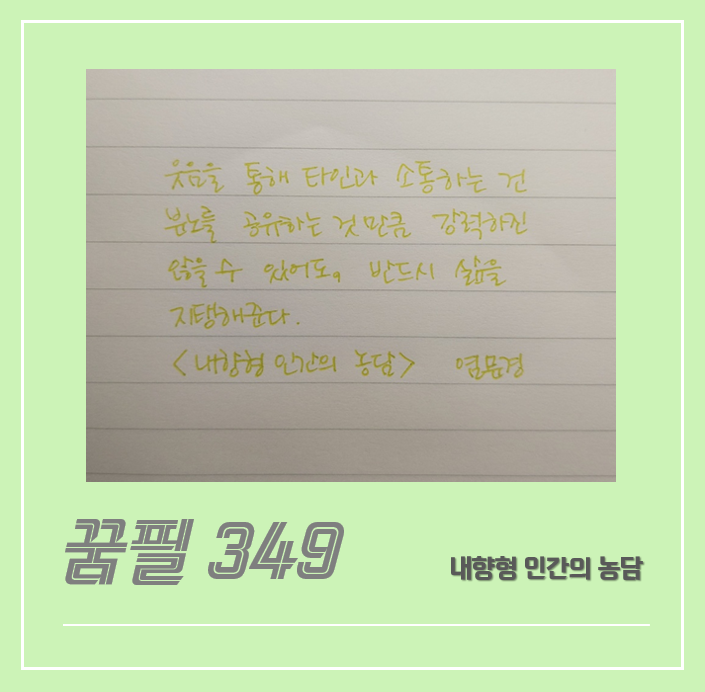 웃음을 통해 타인과 소통하는 건
분노를 공유하는 것만큼 강력하진
않을 수 있어도, 반드시 삶을
지탱해준다.
<내향형 인간의 농담> 염문경
꿈필 349
내향형 인간의 농담